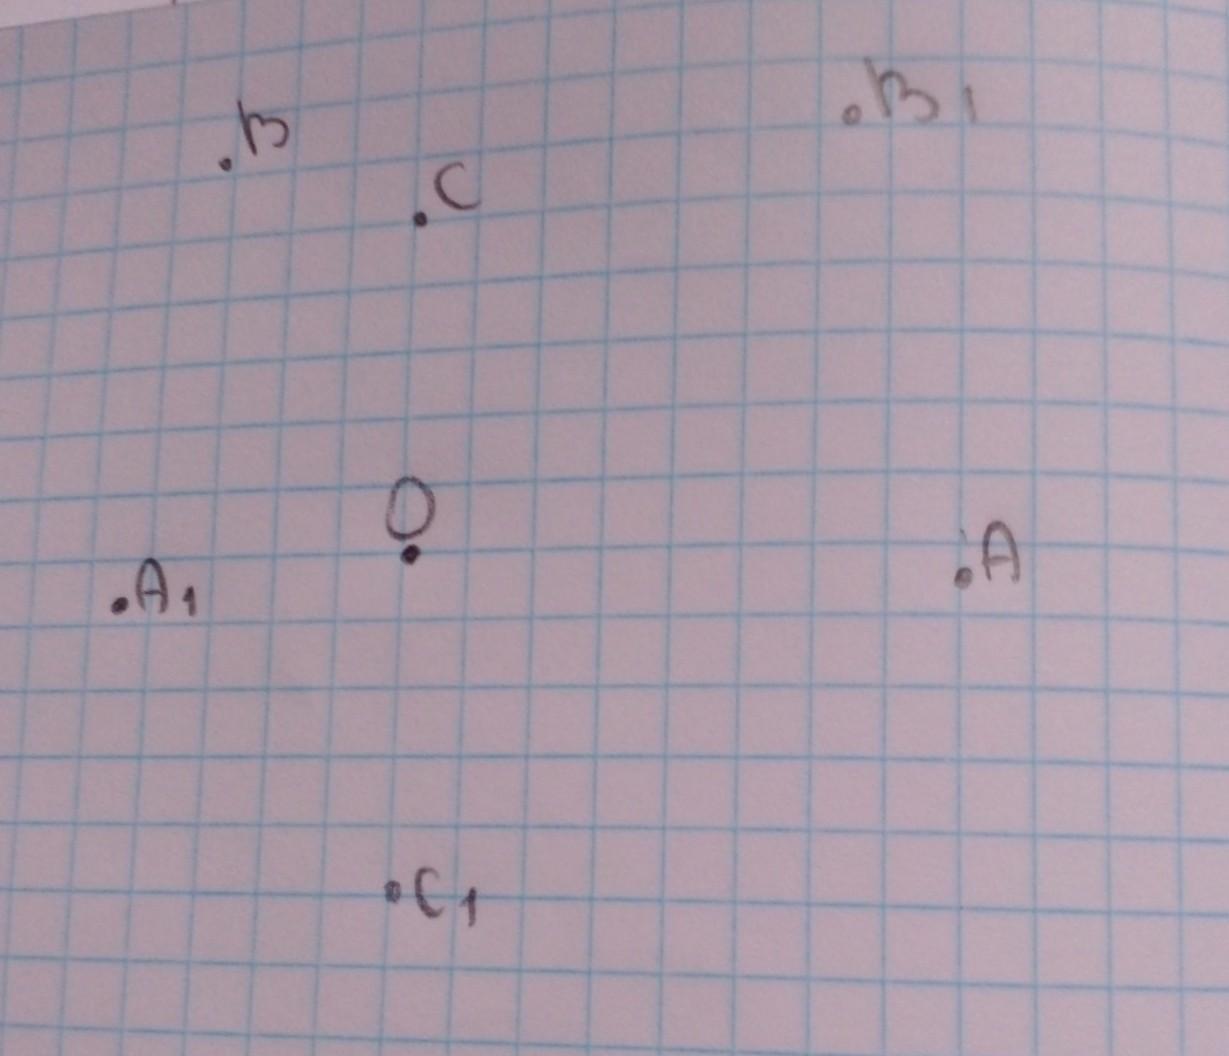 B
B1
C
O
A
A1
C1